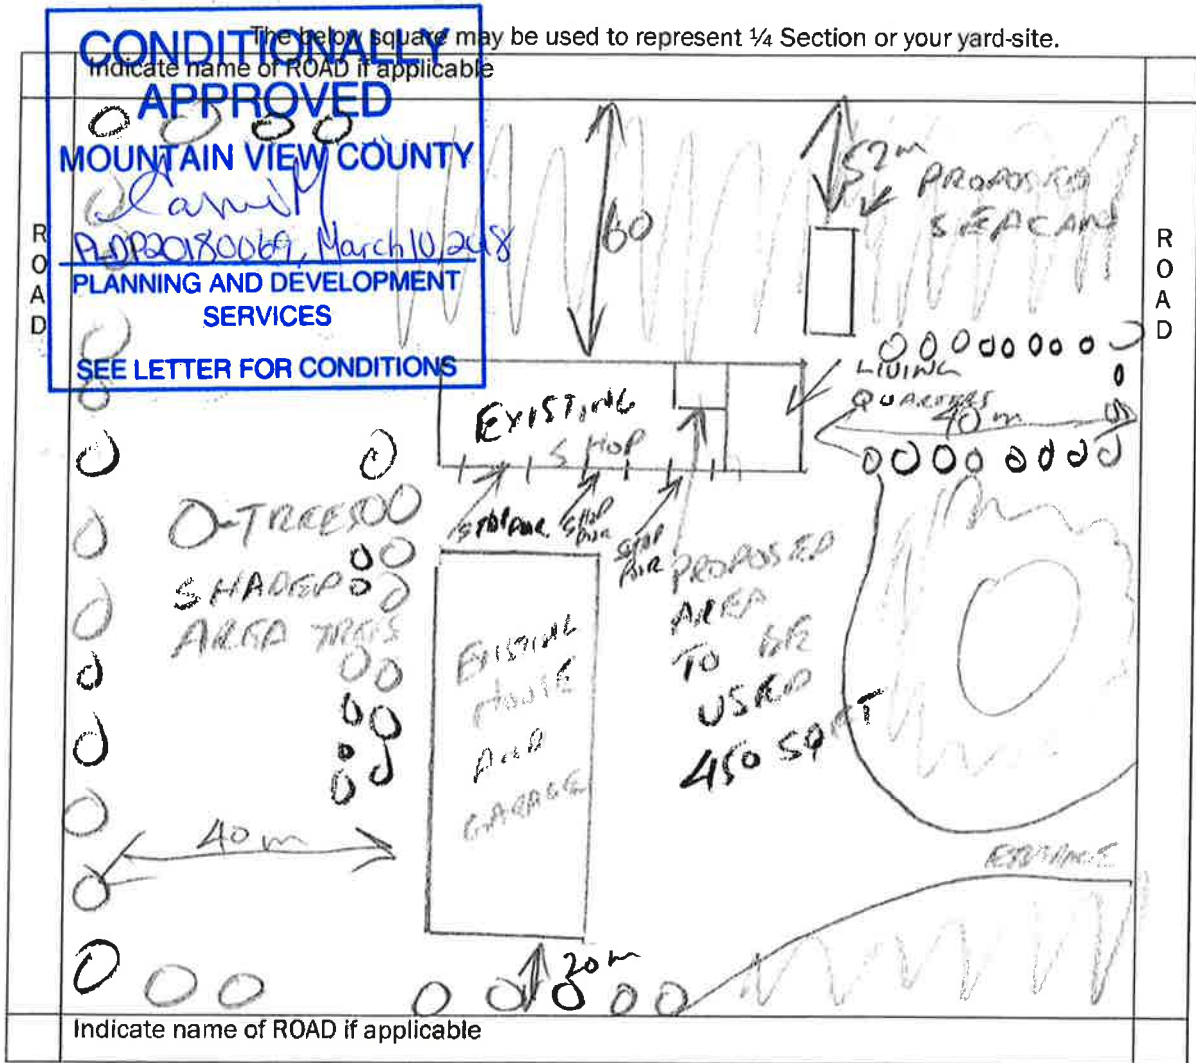 The below square may be used to represent ¼ Section or your yard-site.
Indicate name of ROAD if applicable
CONDITIONALLY
APPROVED
MOUNTAIN VIEW COUNTY
PLDP20180069, March 10, 2018
PLANNING AND DEVELOPMENT
SERVICES
SEE LETTER FOR CONDITIONS
ROAD
ROAD
60
52m
PROPOSED
SEACAN
LIVING
QUARTERS
40 m
EXISTING
SHOP
SHOP DOOR
SHOP DOOR
SHOP DOOR
O-TREES
SHADED
AREA TREES
PROPOSED
AREA
TO BE
USED
450 SQ FT
EXISTING
HOUSE
AND
GARAGE
40 m
ENTRANCE
20m
Indicate name of ROAD if applicable